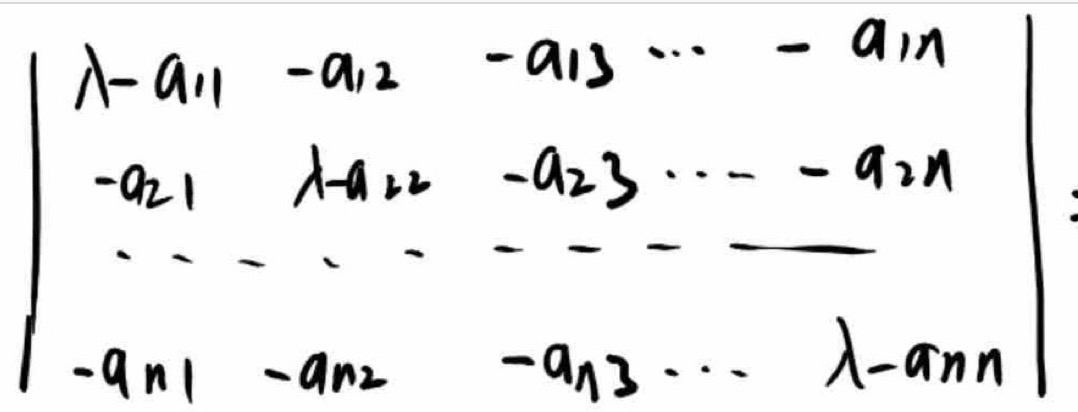 λ-a11 -a12 -a13 ... -a1n
-a21 λ-a22 -a23 ... -a2n
. . . . . - - - —
-an1 -an2 -an3 ... λ-ann